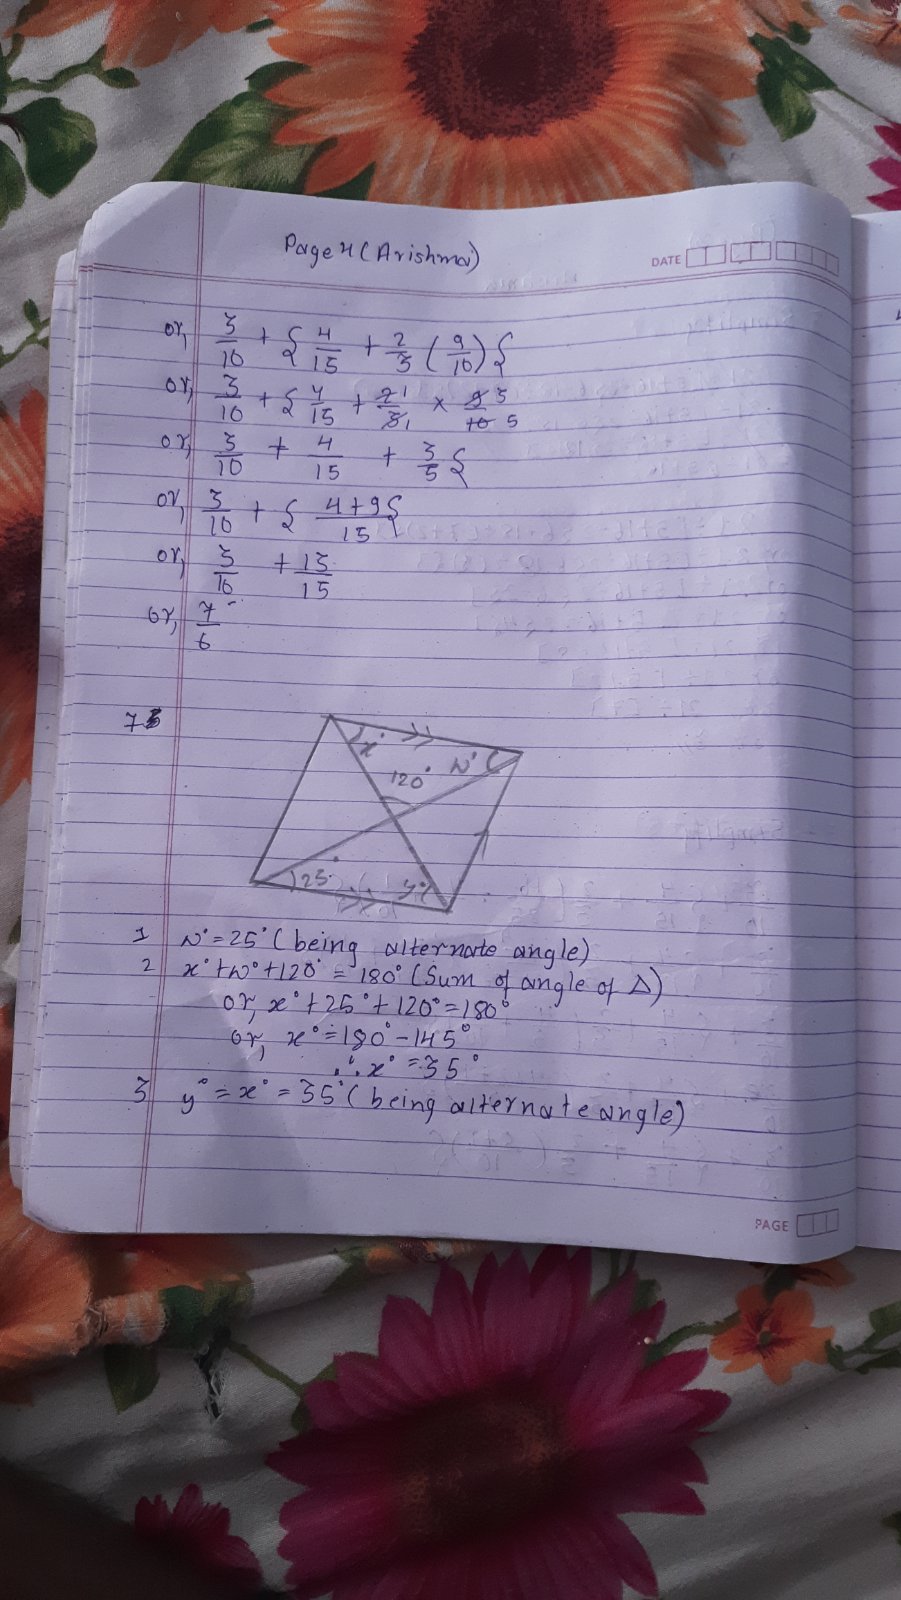 Page 4 (Arishma)
DATE
or, 3/10 + { 4/15 + 2/3 ( 9/10 ) }
or, 3/10 + { 4/15 + 2 1/3 1 × 9 3/10 5
or, 3/10 + 4/15 + 3/5 }
or, 3/10 + { 4+9/15 }
or, 3/10 + 13/15
or, 7/6
7
x° w°
120°
25° y°
1 w° = 25° (being alternate angle)
2 x° + w° + 120° = 180° (Sum of angle of Δ)
or, x° + 25° + 120° = 180°
or, x° = 180° - 145°
∴ x° = 35°
3 y° = x° = 35° (being alternate angle)
PAGE